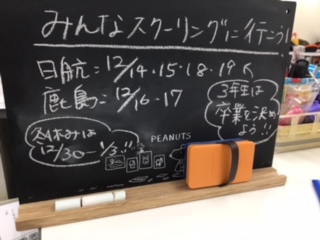 みんなスクーリングに行こう!
日航:12/14・15・18・19
鹿島:12/16・17
3年生は
卒業を決め
よう!!
冬休みは
12/30~1/3!!
PEANUTS